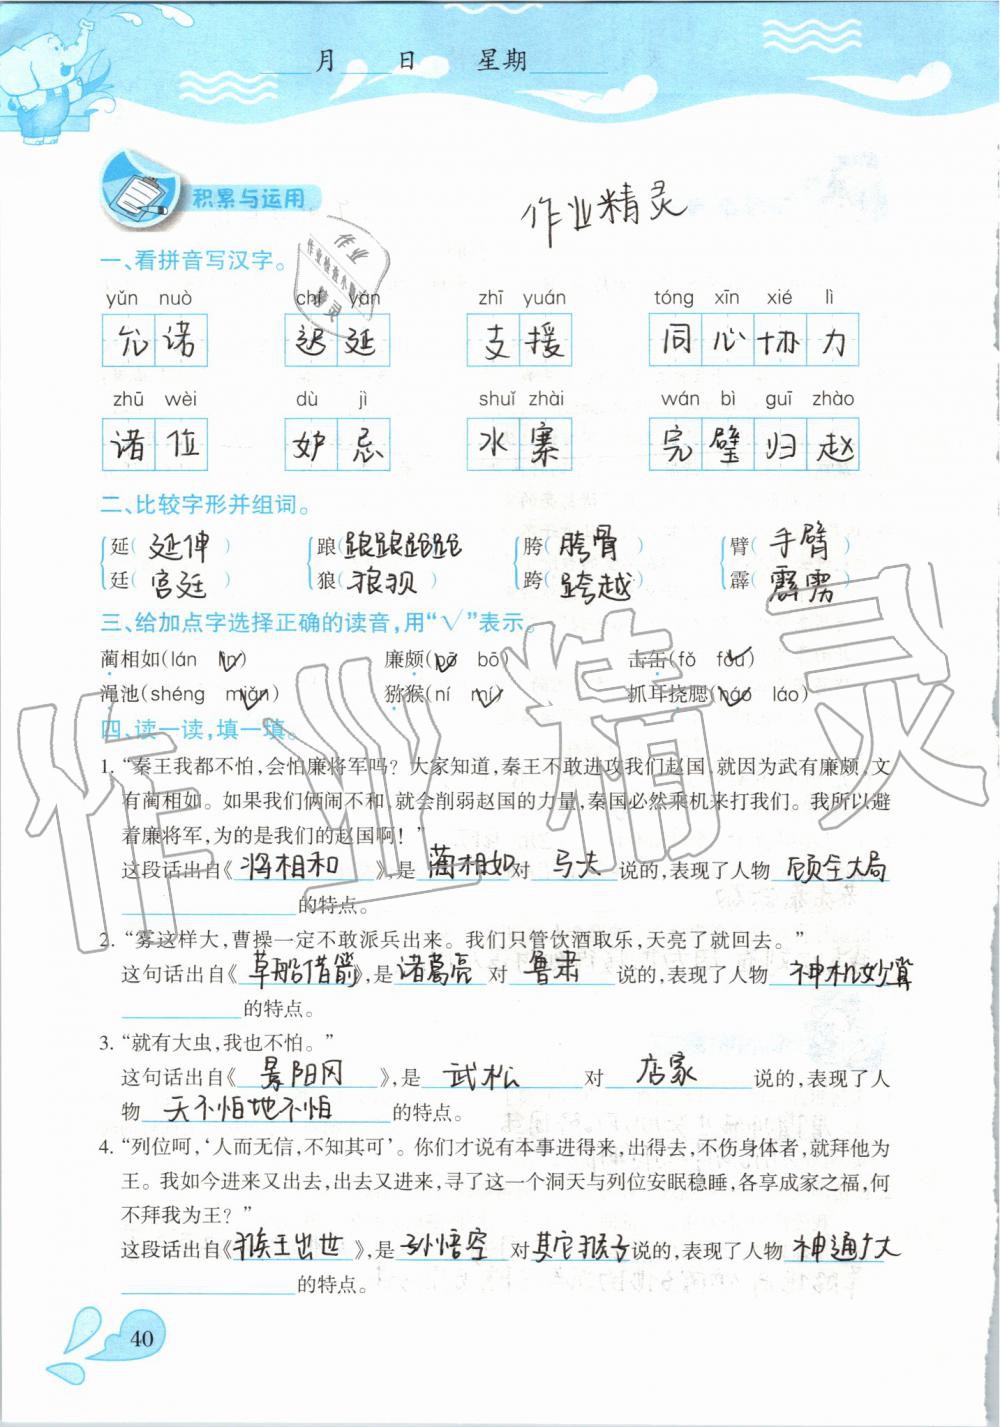 月 日 星期
积累与运用
作业精灵
一、看拼音写汉字。
yǔn nuò chí yán zhī yuán tóng xīn xié lì
允诺 迟延 支援 同心协力
zhū wèi dù jì shuǐ zhài wán bì guī zhào
诸位 妒忌 水寨 完璧归赵
二、比较字形并组词。
延(延伸) 踉(踉踉跄跄) 胯(胯骨) 臂(手臂)
廷(宫廷) 狼(狼狈) 跨(跨越) 霹(霹雳)
三、给加点字选择正确的读音,用“√”表示。
蔺相如(lán lìn√) 廉颇(pō√ bō) 击缶(fǒ fǒu√)
渑池(shéng miǎn√) 猕猴(ní mí√) 抓耳挠腮(náo√ láo)
四、读一读,填一填。
1. “秦王我都不怕,会怕廉将军吗？大家知道,秦王不敢进攻我们赵国,就因为武有廉颇,文
有蔺相如。如果我们俩闹不和,就会削弱赵国的力量,秦国必然乘机来打我们。我所以避
着廉将军,为的是我们的赵国啊！”
这段话出自《将相和》,是 蔺相如 对 马夫 说的,表现了人物 顾全大局
的特点。
2. “雾这样大,曹操一定不敢派兵出来。我们只管饮酒取乐,天亮了就回去。”
这句话出自《草船借箭》,是 诸葛亮 对 鲁肃 说的,表现了人物 神机妙算
的特点。
3. “就有大虫,我也不怕。”
这句话出自《景阳冈》,是 武松 对 店家 说的,表现了人
物 天不怕地不怕 的特点。
4. “列位呵,‘人而无信,不知其可’。你们才说有本事进得来,出得去,不伤身体者,就拜他为
王。我如今进来又出去,出去又进来,寻了这一个洞天与列位安眠稳睡,各享成家之福,何
不拜我为王？”
这段话出自《猴王出世》,是 孙悟空 对 其它猴子 说的,表现了人物 神通广大
的特点。
40
作业精灵